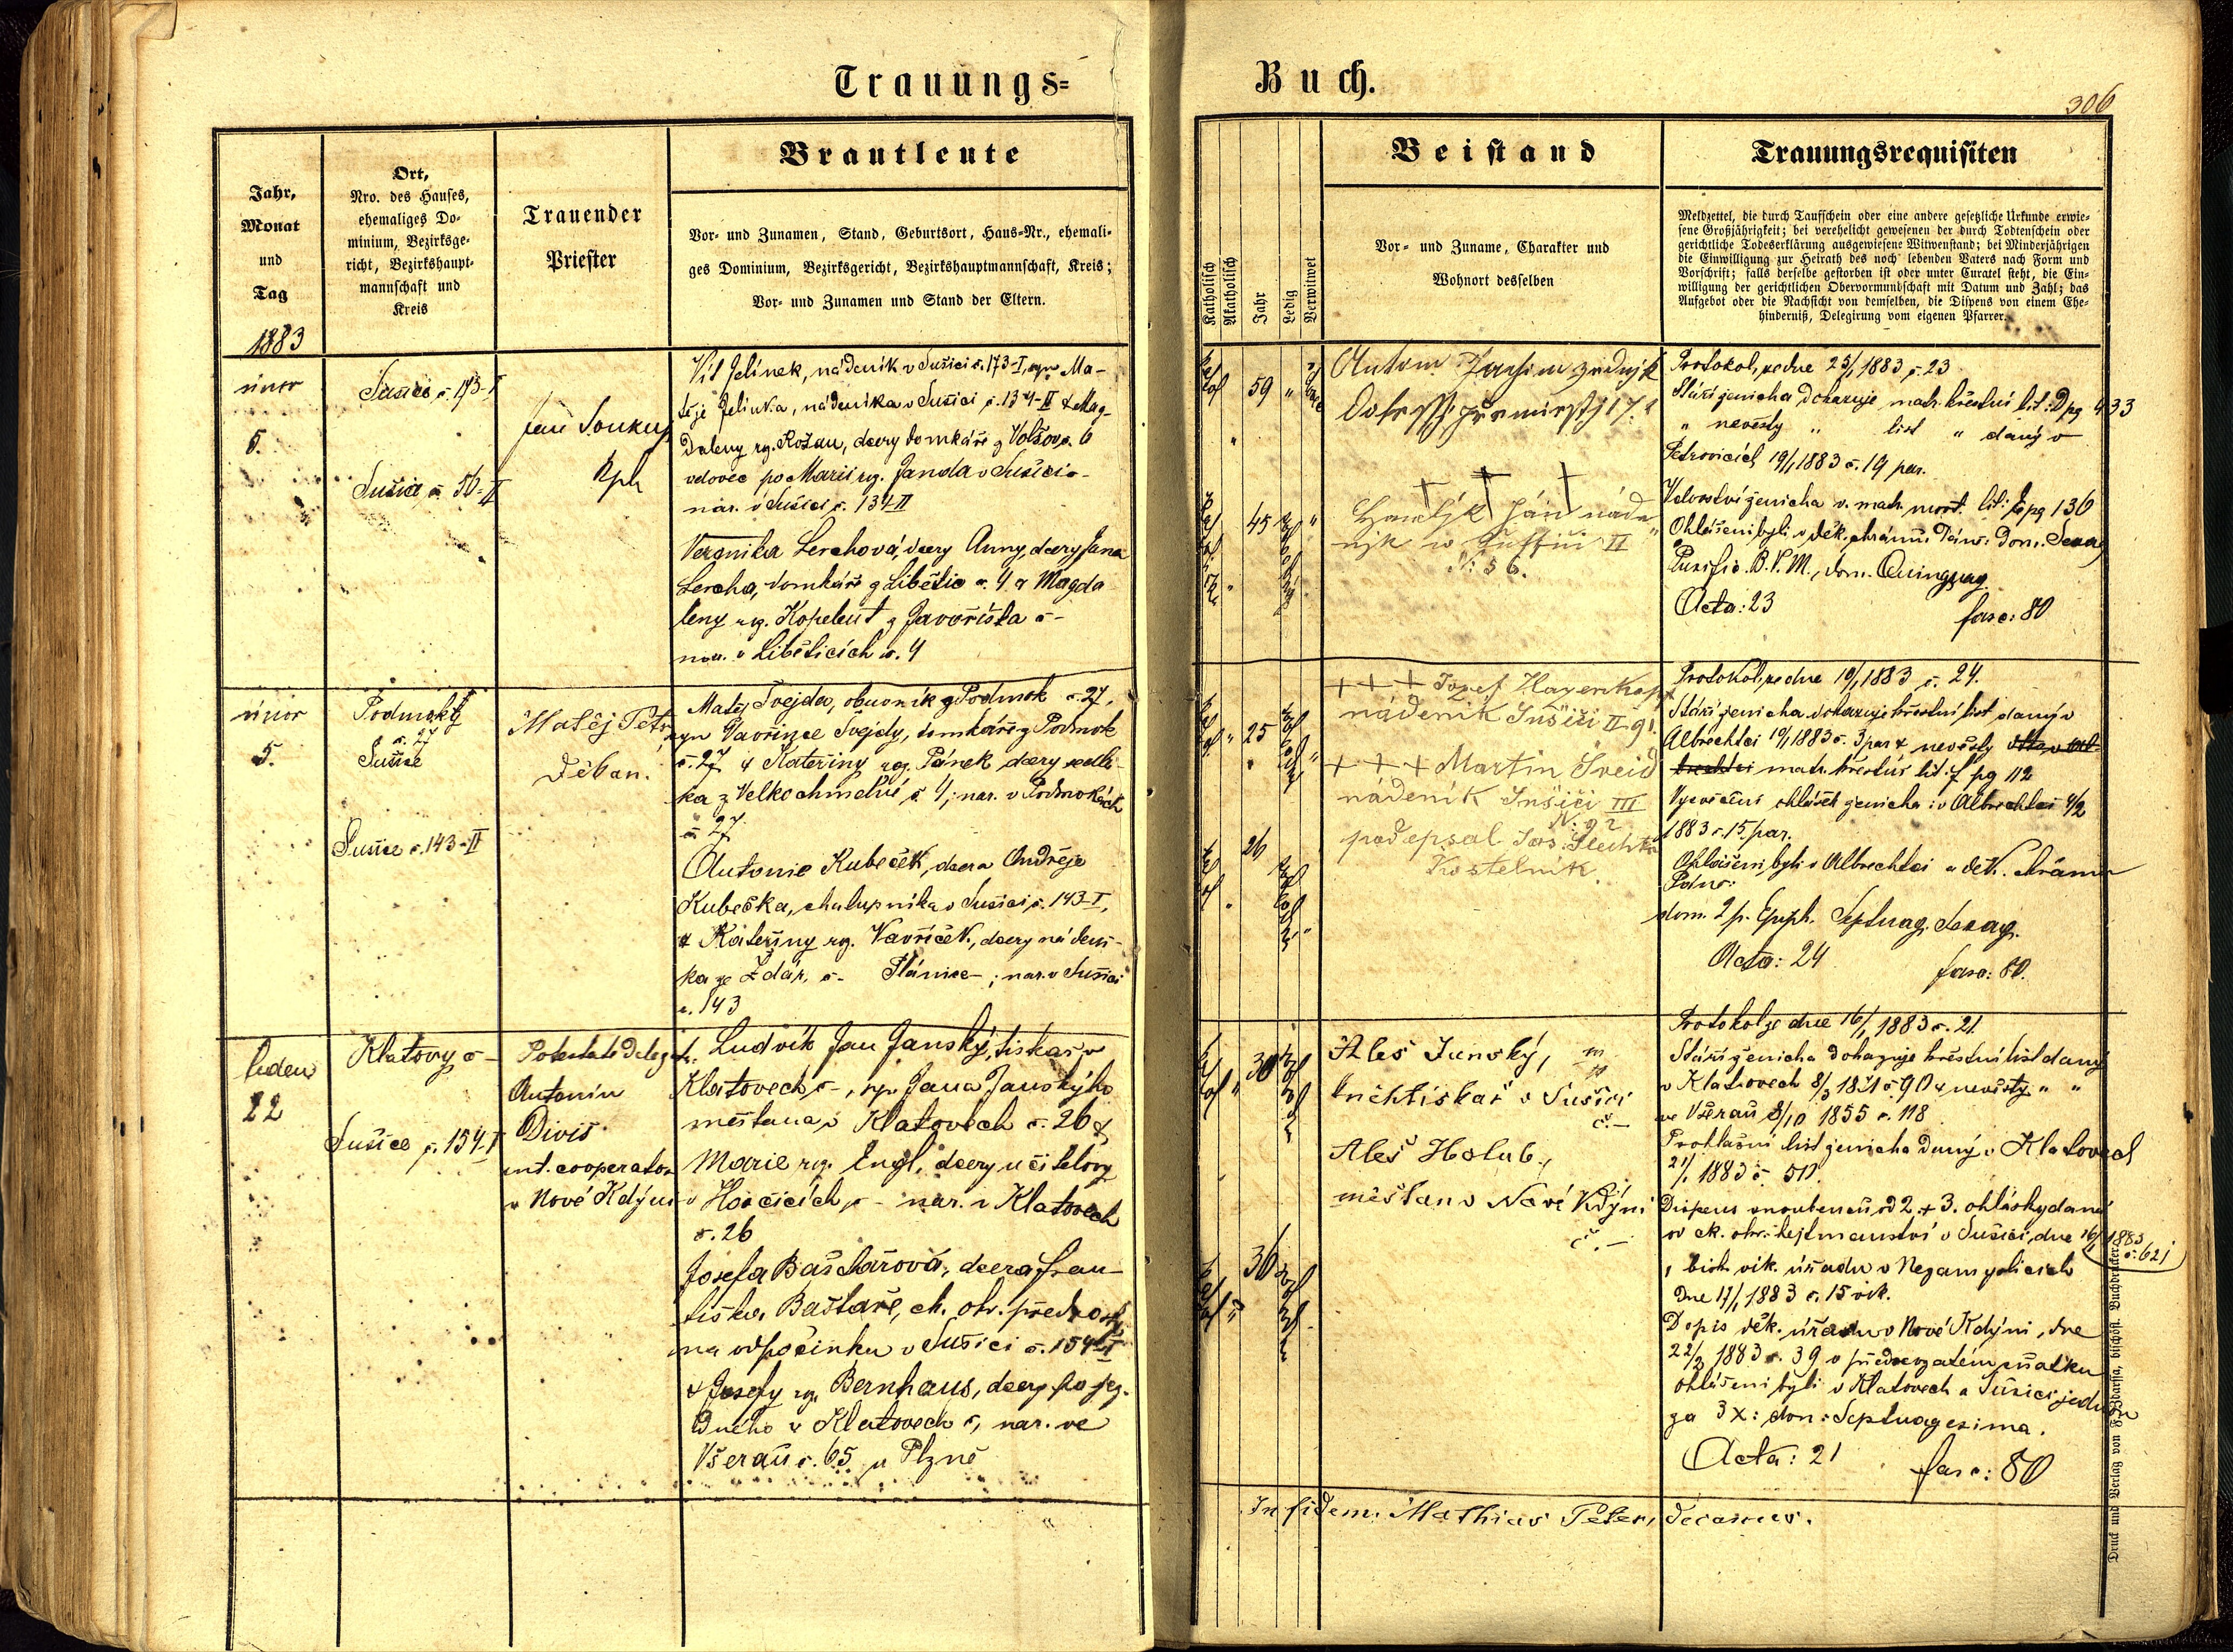 Trauungs=
Buch.
306
Jahr,
Monat
und
Tag
1883
Ort,
Nro. des Hauses,
ehemaliges Do-
minium, Bezirksge-
richt, Bezirkshaupt-
mannschaft und
Kreis
Trauender
Priester
Brautleute
Vor- und Zunamen, Stand, Geburtsort, Haus-Nr., ehemali-
ges Dominium, Bezirksgericht, Bezirkshauptmannschaft, Kreis;
Vor- und Zunamen und Stand der Eltern.
Katholisch
Akatholisch
Jahr
Ledig
Verwitwet
Beistand
Vor- und Zuname, Charakter und
Wohnort desselben
Trauungsrequisiten
Meldzettel, die durch Taufschein oder eine andere gesetzliche Urkunde erwie-
sene Großjährigkeit; bei verehelicht gewesenen der durch Todtenschein oder
gerichtliche Todeserklärung ausgewiesene Witwenstand; bei Minderjährigen
die Einwilligung zur Heirath des noch lebenden Vaters nach Form und
Vorschrift; falls derselbe gestorben ist oder unter Curatel steht, die Ein-
willigung der gerichtlichen Obervormundschaft mit Datum und Zahl; das
Aufgebot oder die Nachsicht von demselben, die Dispens von einem Ehe-
hinderniß, Delegirung vom eigenen Pfarrer.
únor
5.
Sušice č. 173-I
Sušice č. 56-II
Jan Soukup
Kpl.
Vít Jelínek, nádeník v Sušici č. 173-I, syn Ma-
těje Jelínka, nádeníka v Sušici č. 134-II & Mag-
daleny roz. Rožan, dcery domkáře z Volšov č. 6
vdovec po Marii roz. Janda v Sušici -
nar. v Sušici č. 134-II
Veronika Lerchová, dcery Anny, dcery Jana
Lercha, domkáře z Libětic č. 4 a Magda
leny roz. Kopelent z Javoříčka č -
nar. v Liběticích č. 4
59
45
Antonín
17.
Jan
II
N. 56.
Protokol, ze dne 25/1 1883 č. 23
Stáří ženicha dokazuje matr. křestní lit: D pg 433
" nevěsty " list " daný v
Petrovicích 19/1 1883 č. 19 par.
Vdovství ženicha v. matr. mort. lit: E pg 136
Ohlášeni byli v děk. chrámu Páně: dom. Sexag
Purific. B.V.M., dom. Quinquag
Acta: 23
fasc: 80
únor
5.
Podmoky
č. 27
Sušice
Sušice č. 143-II
Matěj Petr
děkan.
Matěj Švejda, obuvník z Podmok č. 27,
syn Vavřince Švejdy, domkáře z Podmok
č. 27 & Kateřiny roz. Pánek dcery sedlá-
ka z Velkochmelné č. 4; nar. v Podmokách
č 27
Antonie Kubeček, dcera Ondřeje
Kubečka, chalupníka v Sušici č. 143-I,
& Kateřiny roz. Vavříček, dcery nádení-
ka ze Ždár, č - Plánice -; nar. v Sušici
č. 143
25
26
+ + + Josef Hayenkopf
nádeník Sušici II-91.
+ + + Martin Šveid
nádeník Sušici III
N. 92
podepsal Jos. Šlechta
Kostelník.
Protokol, ze dne 10/1 1883 č. 24.
Stáří ženicha dokazuje křestní list daný v
Albrechtci 10/1 1883 č. 3 par & nevěsty
matr. křestní lit. f pg 112
Vysvěčení ohlášek ženicha: v Albrechtci 4/2
1883 č. 15. par.
Ohlášeni byli v Albrechtci a děk. chrámu
Páně:
dom. 2 p. Epiph. Septuag. Sexag.
Acta: 24
fasc: 80.
leden
22
Klatovy č -
Sušice č. 154-I
Potestate delegata:
Antonín
Diviš
int. cooperator
v Nové Kdýni
Ludvík Jan Janský, tiskař v
Klatovech č -, syn Jana Janskýho
měšťana v Klatovech č. 26 &
Marie roz. Engl, dcery učitelovy
v Horčicích, č - nar. v Klatovech
č. 26
Josefa Baštářová, dcera Fran-
tiška Baštáře, ck. okr. přednosty
na odpočinku v Sušici č. 154-I
& Josefy roz. Bernhaus, dcery po
v Klatovech č, nar. ve
Všerau č. 65 u Plzně
30
36
Aleš Janský,
knihtiskař v Sušici
č. -
Aleš Holub,
měšťan v Nové Kdýni
č. -
Protokol ze dne 16/1 1883 č. 21
Stáří ženicha dokazuje křestní list daný
v Klatovech 8/3 1881 č. 90 & nevěsty " "
ve Všerau 8/10 1855 č. 118
Prohlašní list ženicha daný v Klatovech
21/1 1883 č. 50.
Dispens snoubenců od 2. & 3. ohlášky daná
od ck. okr. hejtmanství v Sušici, dne 16/1 1883
č. 621
a bisk. vik. úřadu v Nezamyslicích
dne 17/1 1883 č. 15 vik.
Dopis děk. úřadu v Nové Kdýni, dne
22/2 1883 č. 39 o předsevzatém sňatku
ohlášeni byli v Klatovech a Sušici jednou
za 3 x: dom: Septuagesima.
Acta: 21
fasc: 80
In fidem. Mathias Peter, decanus.
Druck und Verlag von F. Zdarssa, bischöfl. Buchdrucker